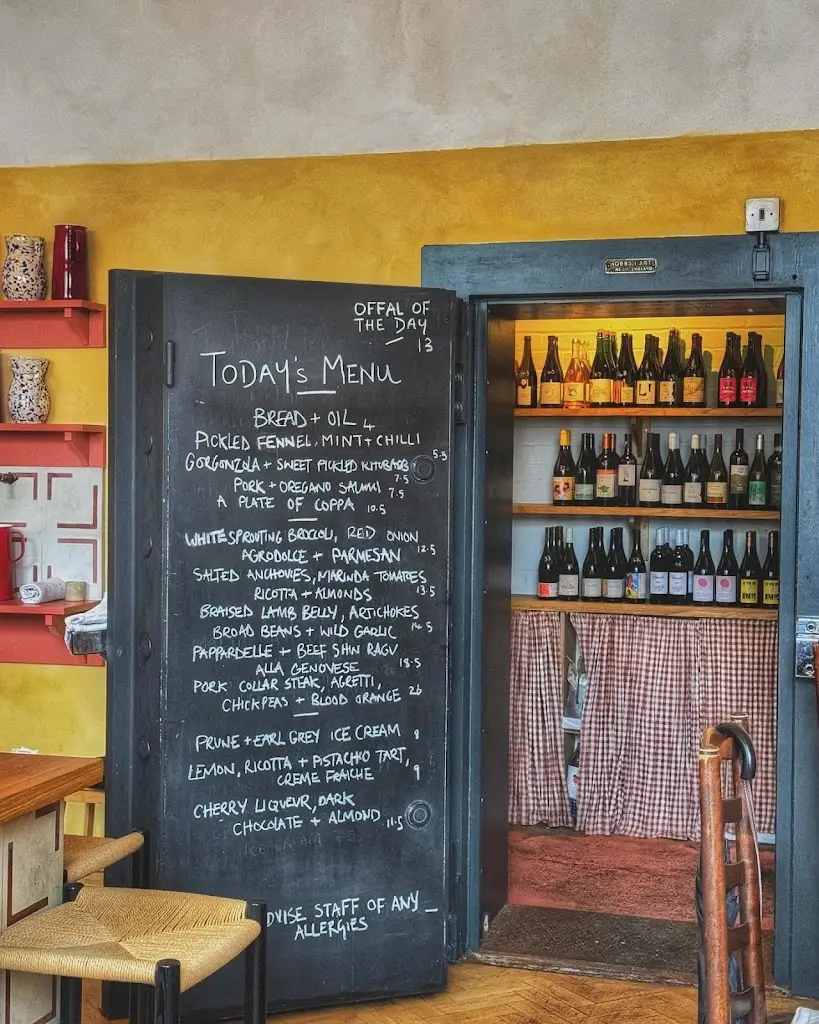 OFFAL OF
THE DAY
13
TODAY'S MENU
BREAD + OIL 4
PICKLED FENNEL, MINT + CHILLI 5.5
GORGONZOLA + SWEET PICKLED RHUBARB 7.5
PORK + OREGANO SALAMI 7.5
A PLATE OF COPPA 10.5
WHITE SPROUTING BROCCOLI, RED ONION
AGRODOLCE + PARMESAN 12.5
SALTED ANCHOVIES, MARINDA TOMATOES
RICOTTA + ALMONDS 13.5
BRAISED LAMB BELLY, ARTICHOKES
BROAD BEANS + WILD GARLIC 14.5
PAPPARDELLE + BEEF SHIN RAGU
ALLA GENOVESE 18.5
PORK COLLAR STEAK, AGRETTI,
CHICKPEAS + BLOOD ORANGE 26
PRUNE + EARL GREY ICE CREAM 8
LEMON, RICOTTA + PISTACHIO TART,
CREME FRAICHE 9
CHERRY LIQUEUR, DARK
CHOCOLATE + ALMOND 11.5
DVISE STAFF OF ANY
ALLERGIES